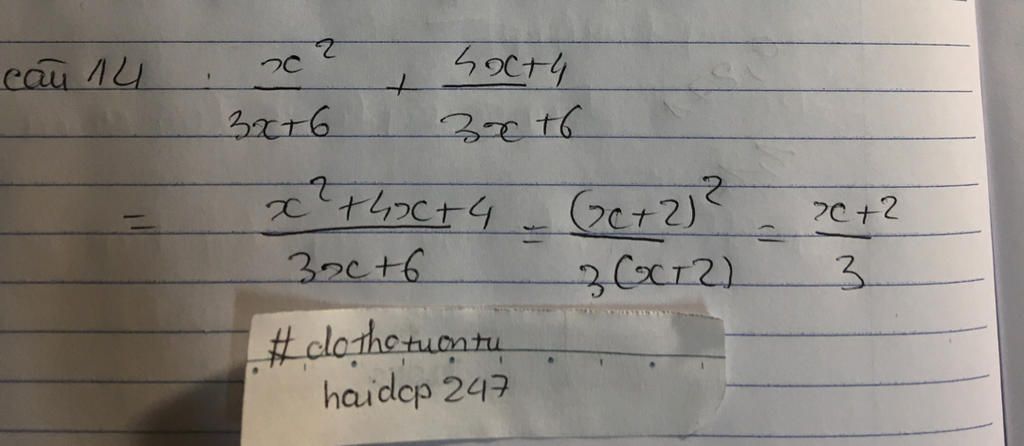 câu 14 : x²/3x+6 + 4x+4/3x+6
= x²+4x+4/3x+6 = (x+2)²/3(x+2) = x+2/3
# dothotuontu
haidcp 247